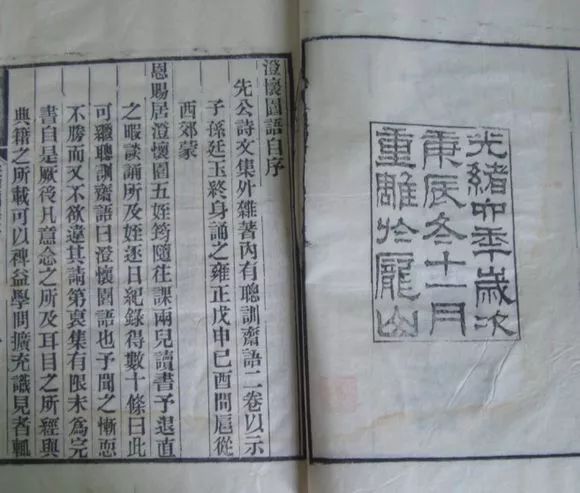 光緒六年歲次
庚辰冬十一月
重雕於龍山
澄懷園語自序
先公詩文集外雜著內有聰訓齋語二卷以示
子孫廷玉終身誦之雍正戊申己酉間扈從
西郊蒙
恩賜居澄懷園五姪筠隨往課兩兒讀書予退直
之暇談誦所及姪逐日紀錄得數十條曰此
可繼聰訓齋語曰澄懷園語也予聞之慚恧
不勝而又不欲違其請第裒集有限未為完
書自是厥後凡意念之所及耳目之所經與
典籍之所載可以裨益學問擴充識見者輒